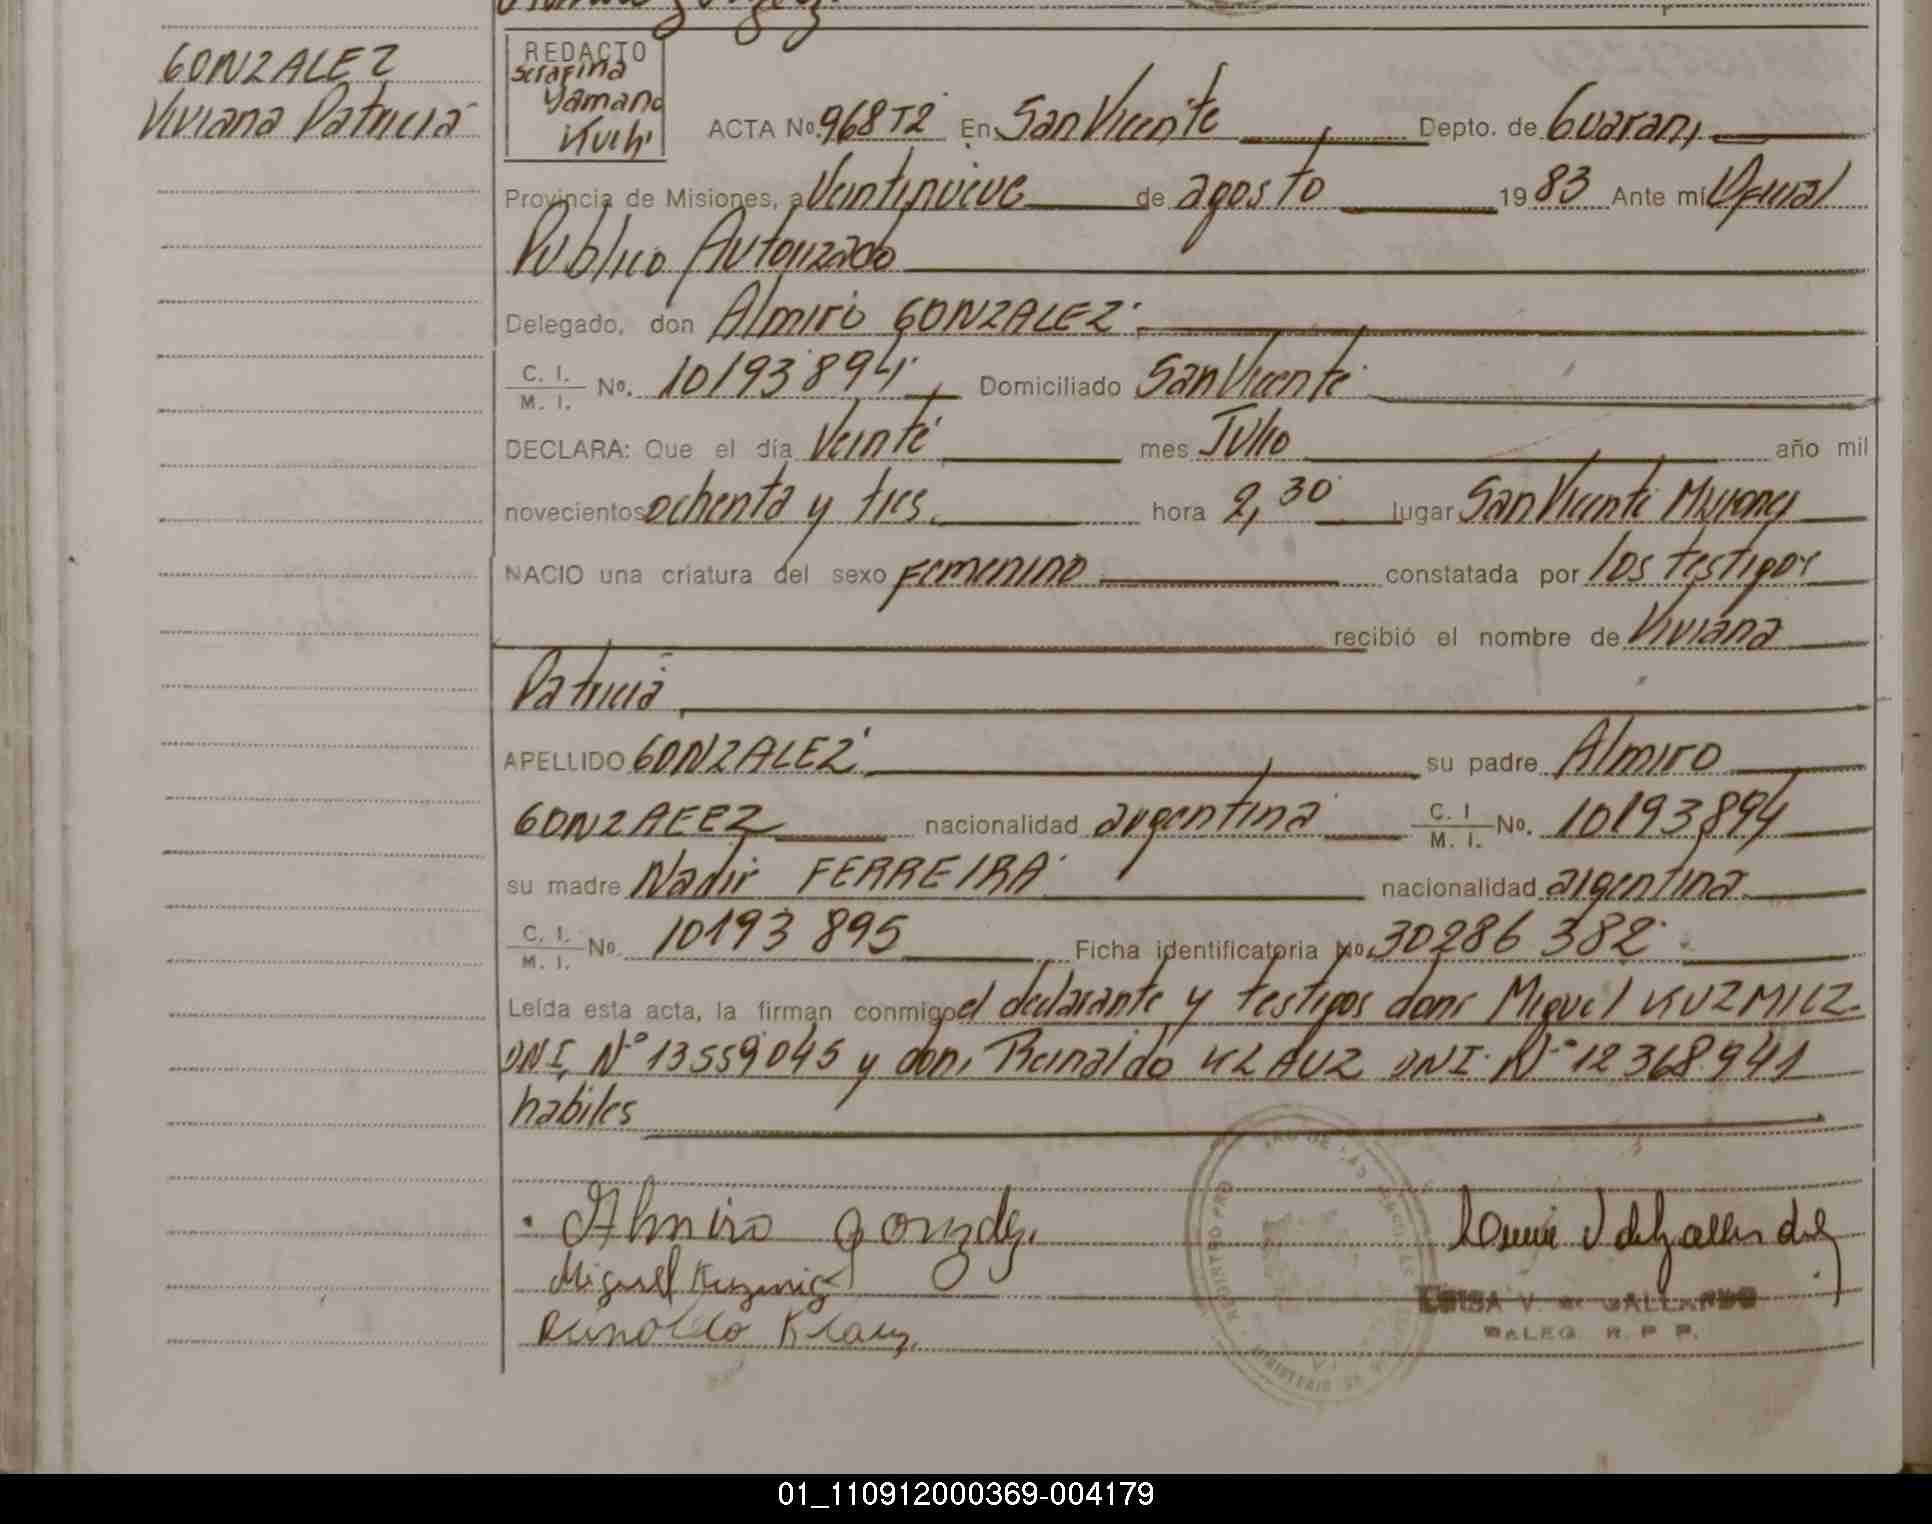 GONZALEZ
Viviana Patricia
REDACTO
Serafina
Yamano
Kuchi
ACTA No. 968 T2 En San Vicente Depto. de Guarani
Provincia de Misiones, a Veintinueve de agosto 1983 Ante mí Oficial
Publico Autorizado
Delegado, don Almiro GONZALEZ
C. I. / M. I. No. 10193894 Domiciliado San Vicente
DECLARA: Que el día Veinte mes Julio año mil
novecientos ochenta y tres hora 2,30 lugar San Vicente Misiones
NACIO una criatura del sexo Femenino constatada por los testigos
recibió el nombre de Viviana
Patricia
APELLIDO GONZALEZ su padre Almiro
GONZALEZ nacionalidad argentina C. I / M. I. No. 10193,894
su madre Nadir FERREIRA nacionalidad argentina
C. I. / M. I. No. 10193 895 Ficha identificatoria No. 30286 382
Leída esta acta, la firman conmigo el declarante y testigos dons Miguel KUZMICZ
DNI, Nº 13559045 y don, Reinaldo KLAUZ DNI. Nº 12368.941
habiles
Almiro gonzalez.
Miguel Kuzmicz
Reinoldo Klauz.
LUISA V. de GALLARDO
DELEG. R. P. P.
01_110912000369-004179